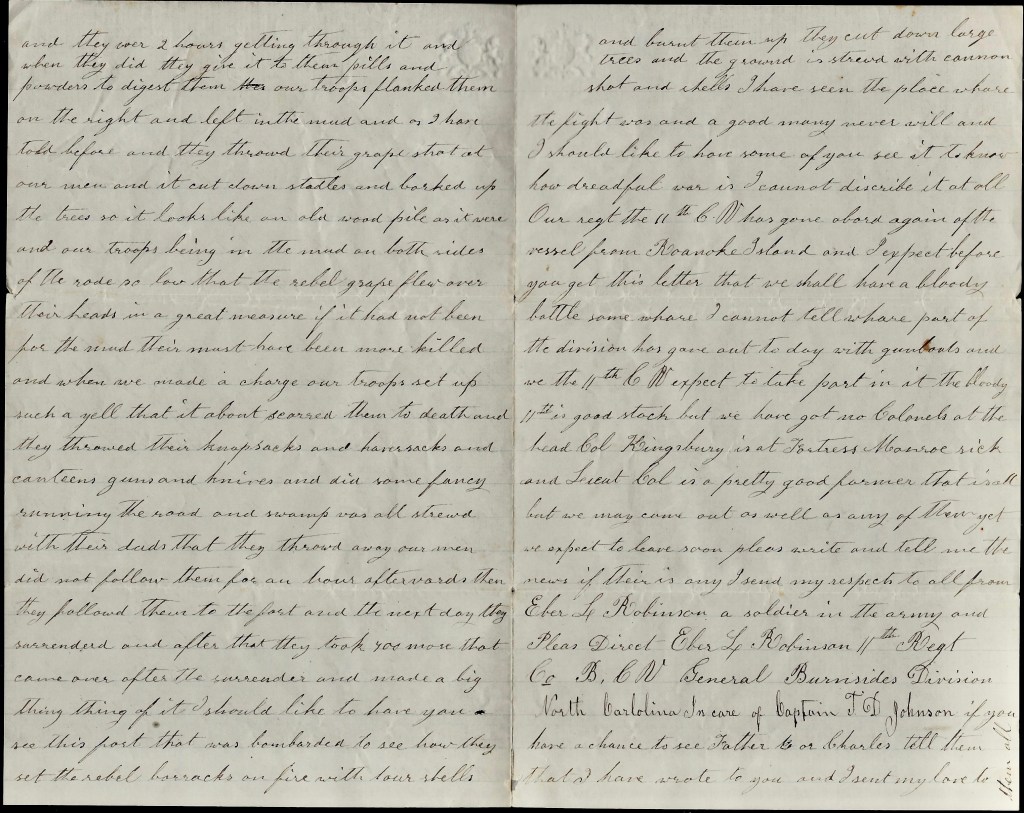 and they wer 2 hours getting through it and
when they did they give it to them pills and
powders to digest them our troops flanked them
on the right and left inthe mud and as I have
told before and they throwd their grape shot at
our men and it cut down stadles and barked up
the trees so it looks like an old wood pile as it were
and our troops being in the mud on both sides
of the rode so low that the rebel grape flew over
their heads in a great measure if it had not been
for the mud their must have been more killed
and when we made a charge our troops set up
such a yell that it about scarred them to death and
they throwed their knapsacks and haversacks and
canteens guns and knives and did some fancy
running the road and swamp was all strewd
with their duds that they throwd away our men
did not follow them for an hour afterwards then
they followd them to the fort and the next day they
surrenderd and after that they took 700 more that
came over after the surrender and made a big
thing thing of it I should like to have you
see this fort that was bombarded to see how they
set the rebel borracks on fire with our shells
and burnt them up they cut down large
trees and the ground is strewd with cannon
shot and shells I have seen the place whare
the fight was and a good many never will and
I should like to have some of you see it to know
how dreadful war is I cannot discribe it at all
Our regt the 11th C. V has gone abord again of the
vessel from Roanoke Island and I expect before
you get this letter that we shall have a bloody
battle some whare I cannot tell whare part of
the division has gone out to day with gunboats and
we the 11th C V expect to take part in it the bloody
11th is good stock but we have got no Colonels at the
head Col Kingsbury is at Fortress Monroe sick
and Lieut Col is a pretty good farmer that is all
but we may come out as well as any of them yet
we expect to leave soon pleas write and tell me the
news if their is any I send my respects to all from
Eber L Robinson a soldier in the army and
Pleas Direct Eber L Robinson 11th Regt
Co B, C V General Burnsides Division
North Carlolina In care of Captain T D Johnson if you
have a chance to see Father or Charles tell them
that I have wrote to you and I sent my love to
them all